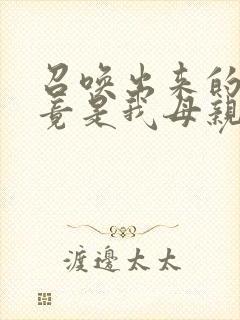 召唤出来的
竟是我母親
渡邊太太